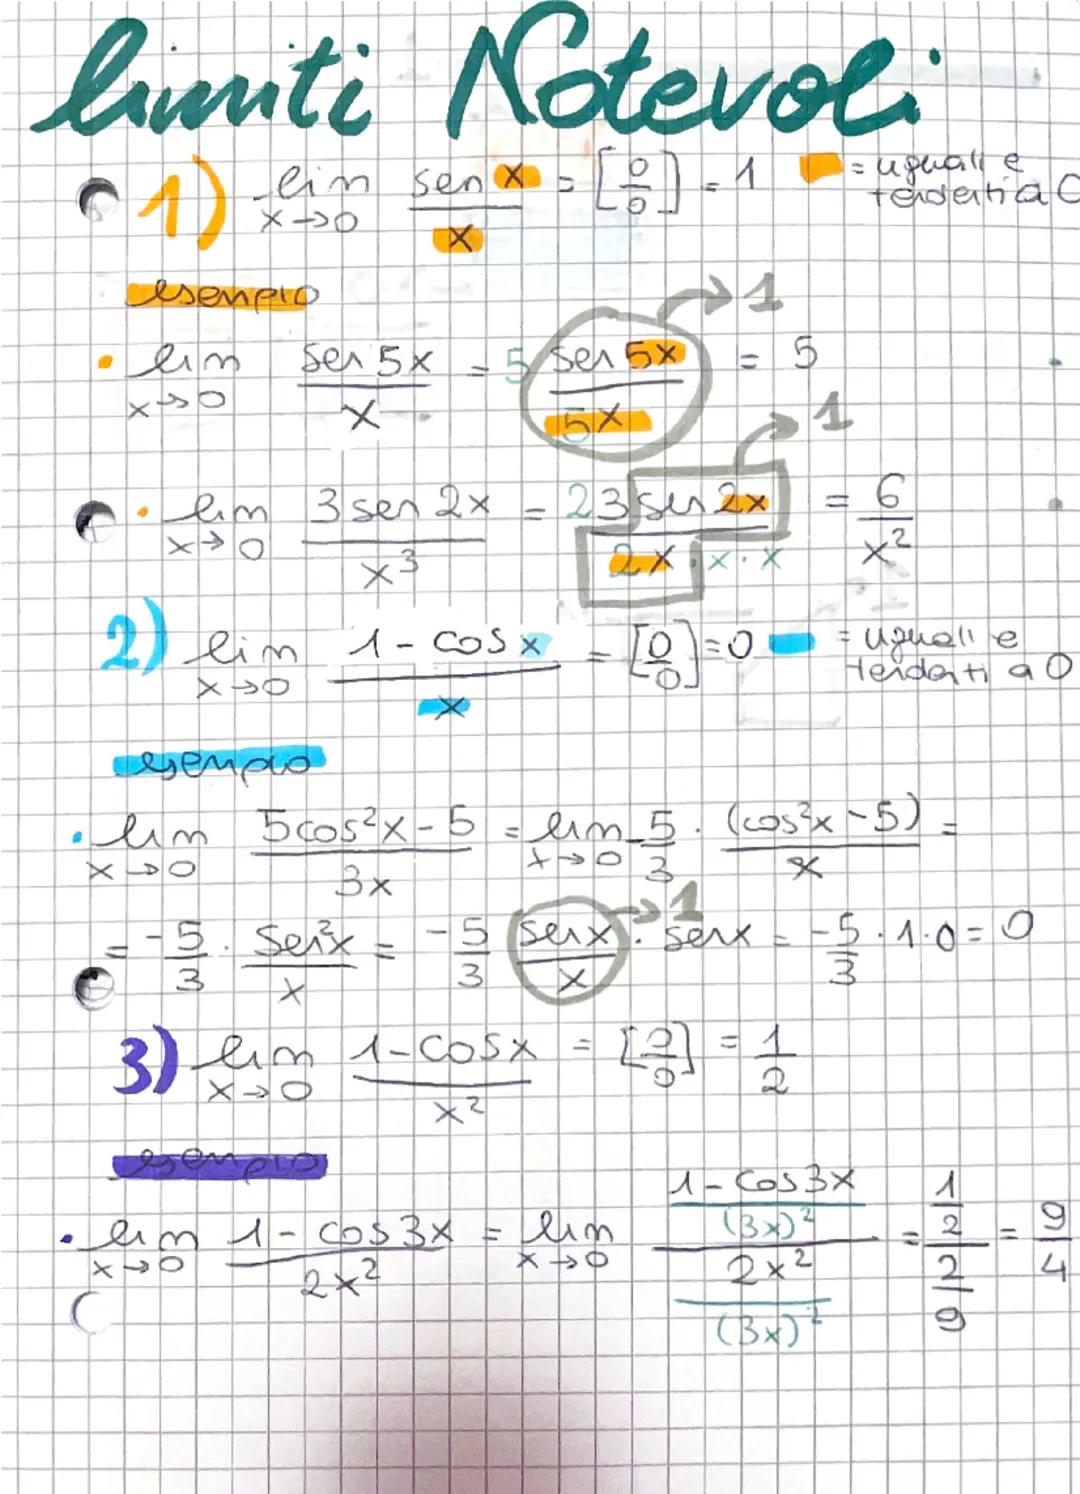 limiti Notevoli
1) lim x→0 sen x / x = [0/0] = 1 = uguali e tendenti a 0
esempio
• lim x→0 sen 5x / x = 5 sen 5x / 5x = 5 → 1
• lim x→0 3 sen 2x / x³ = 2 3 sen 2x / 2x · x · x = 6 / x² → 1
2) lim x→0 1 - cos x / x = [0/0] = 0 = uguali e tendenti a 0
esempio
• lim x→0 5cos²x - 5 / 3x = lim x→0 - 5/3 · (cos²x - 5) / x =
= -5/3 · sen²x / x = -5/3 senx / x · senx = -5/3 · 1 · 0 = 0 → 1
3) lim x→0 1 - cosx / x² = [0/0] = 1/2
esempio
• lim x→0 1 - cos 3x / 2x² = lim x→0 1 - cos 3x / (3x)² / 2x² / (3x)² = 1/2 / 2/9 = 9/4